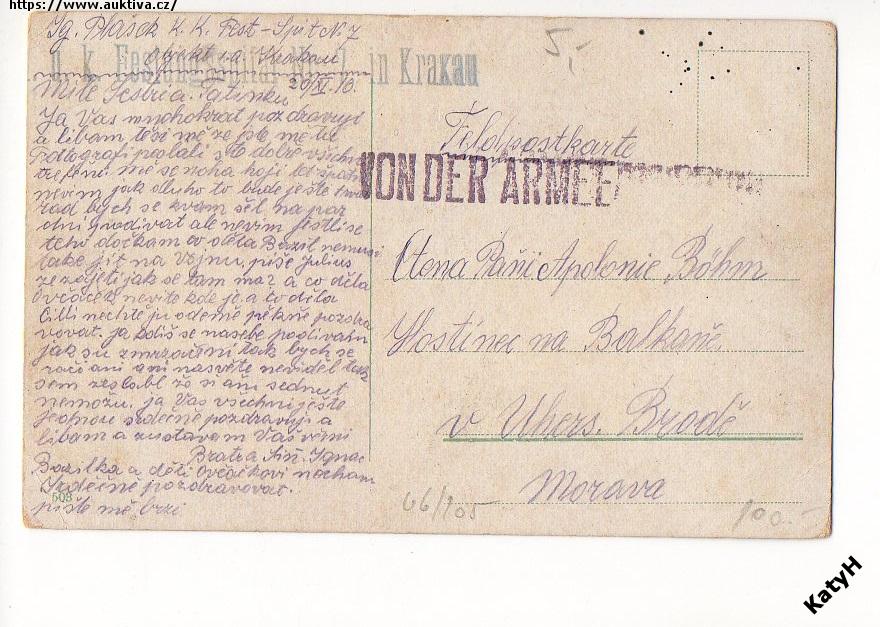 https://www.auktiva.cz/
Ig. Hlásek K. K. Fest-Spit N. 7
Objekt Krakau
k. k. Festungsspital N. 7 in Krakau
Milé Sestři a Tatínku 20/XI. 10.
Ja Vas mnohokrát pozdravuji
a libam těší mě že jste mě tu
Fottografi poslali ste dobře všichni
trefeni mě se noha hojí špatně
nevim jak dluho to bude ještě trvat
rád bych se kvam šel na par
dni podivat ale nevim jestli se
teho dočkam co děla Bazil nemusi
také jit na vojnu, piše Julius
ze zajeti jak se tam ma? a co děla
Ovčáček nevite kde je a co děla
Cilli nechte ju odemě pěkně pozdra
vovat. ja kdiš se nasebe podivam
jak su zmrzačeni tak bych se
rači ani ani nasvětě neviděl tak
sem zeslabl žo si ani sednut
nemožu. ja Vas všechni ještě
jednou srdečně pozdravuji a
libam a zustavam Vaš věrni
Bratr a Ignac
Bazilka a děti Ovčačkovi necham
Srdečně pozdravovat.
pište mě brzi
508
5,-
Feldpostkarte
VON DER ARMEE
Ctena Paňi Apolonie Böhm
Hostinec na Balkaně
v Uhers. Brodě
Morava
66/105
100.-
KatyH